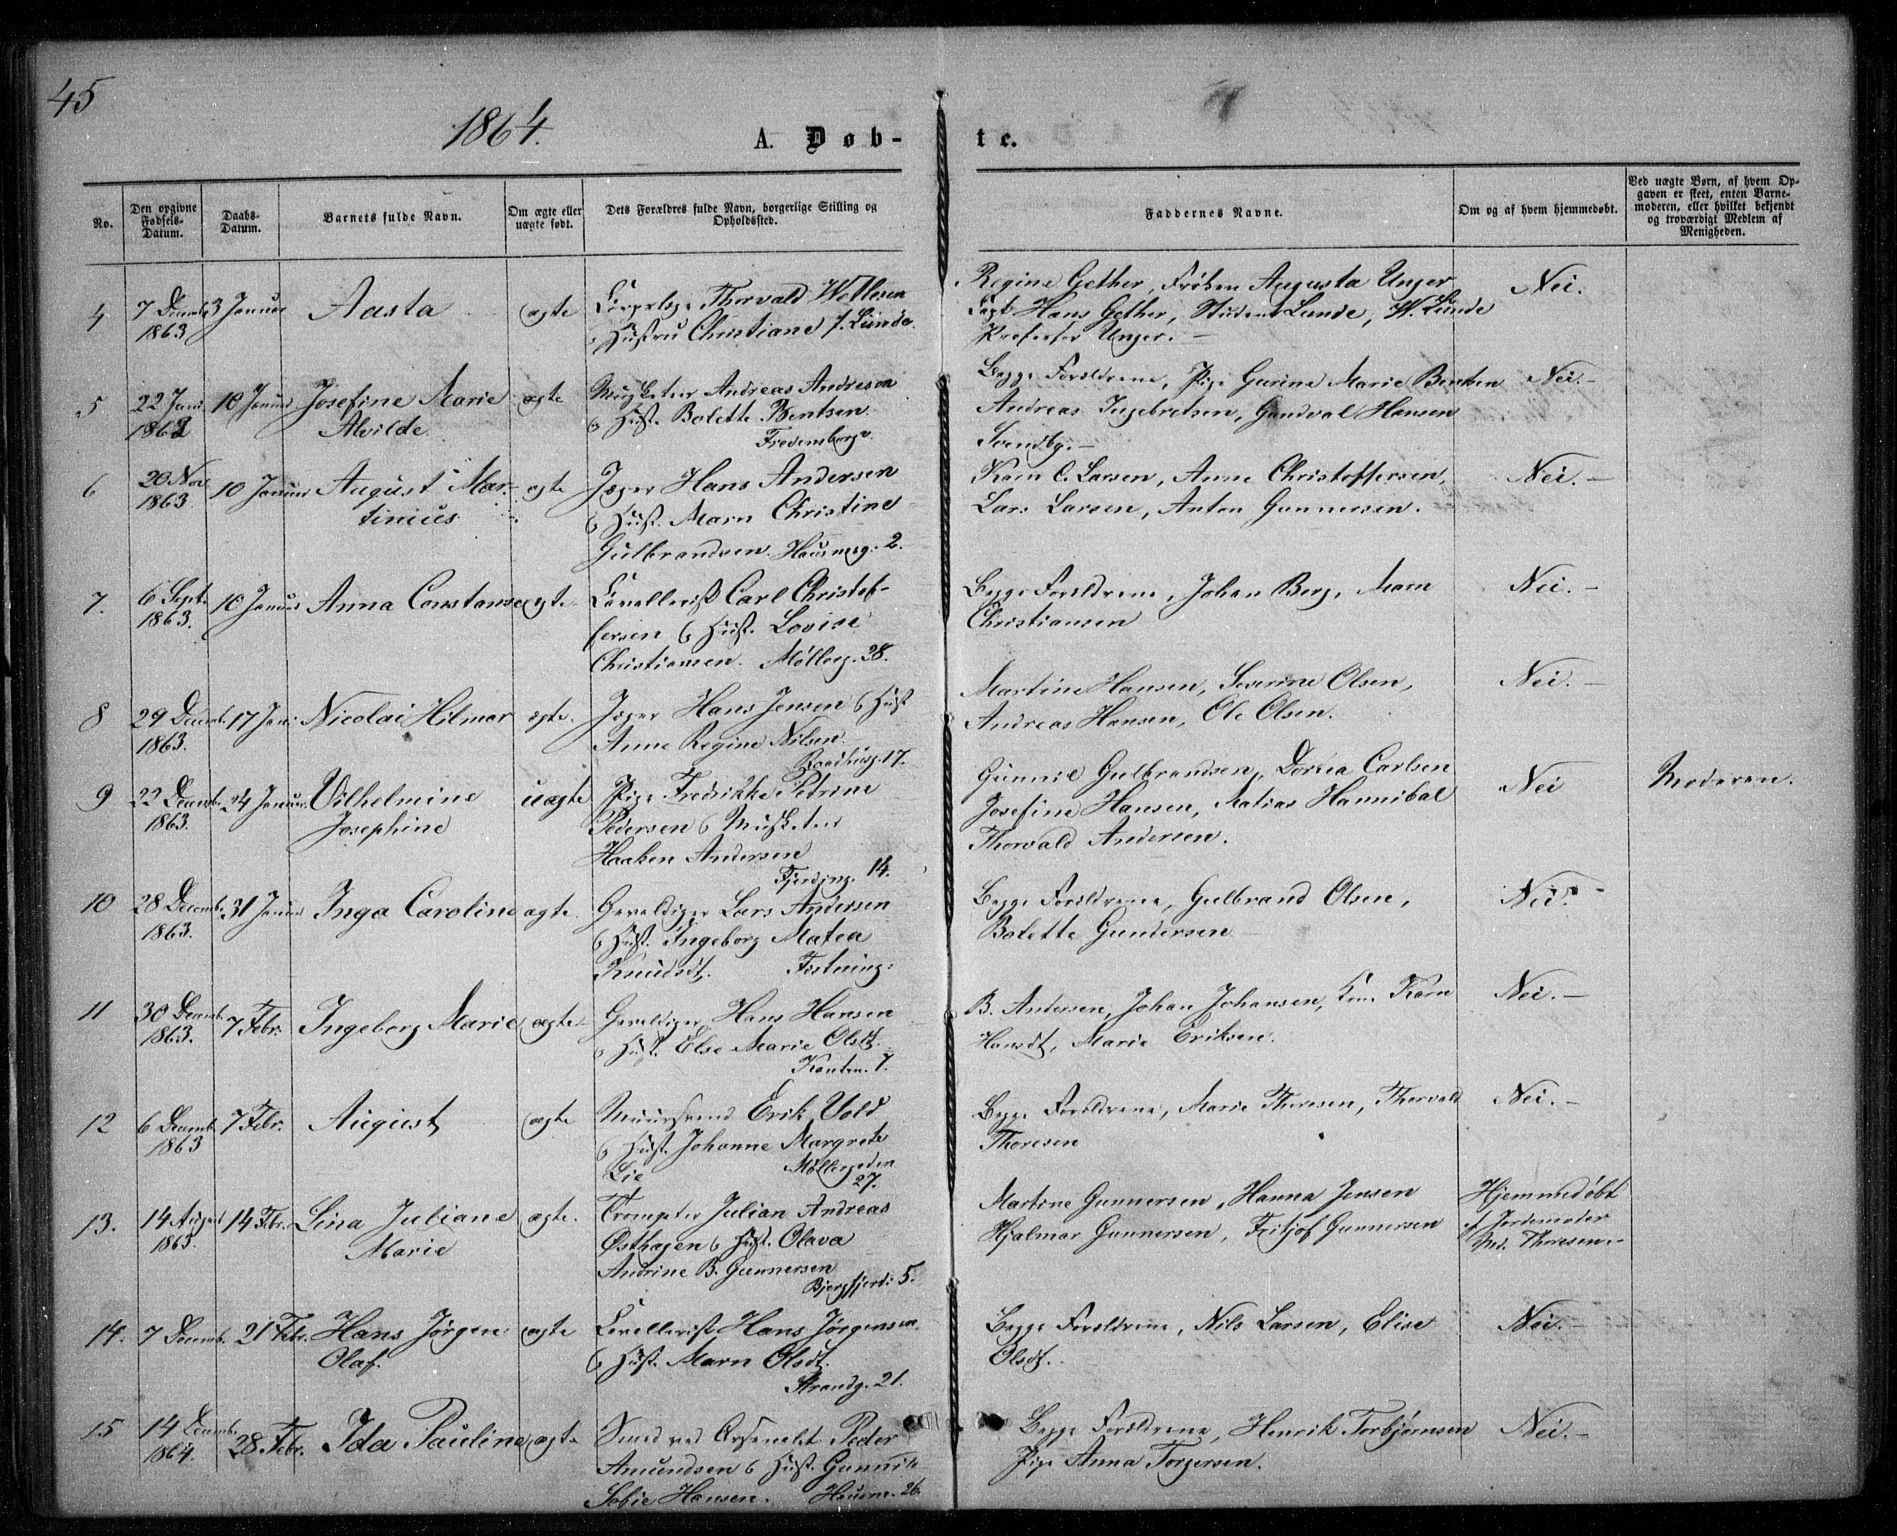 45
1864.
A. Døb-
te.
No.
Den opgivne Fødsels-Datum.
Daabs-Datum.
Barnets fulde Navn.
Om ægte eller uægte født.
Dets Forældres fulde Navn, borgerlige Stilling og Opholdssted.
Faddernes Navne.
Om og af hvem hjemmedøbt.
Ved uægte Børn, af hvem Opgaven er skeet, enten Barnemoderen, eller hvilket bekjendt og troværdigt Medlem af Menigheden.
4 7 Decemb 1863 3 Januar Aasta ægte
Thorvald Wettesen
Hustru Christiane f. Lunde.
Regine Gether, Frøken Augusta Unger
Capt Hans Gether, Student Lunde, W. Lunde
Professor Unger. —
Nei.
5 22 Juni 1863 10 Januar Josefine Marie
Alvilde
ægte
Musketeer Andreas Andresen
& Hust. Bolette Bentsen
Fredensborgv.
Begge Forældrene, Pige Gurine Marie Bentsen
Andreas Ingebretsen, Gundval Hansen
Svendby. —
Nei. —
6 20 Nov 1863 10 Januar August Mar-
tinius
ægte
Jæger Hans Andersen
& Hust. Maren Christine
Gulbrandsen. Hausmsg. 2.
Karn C. Larsen, Anne Christoffersen,
Lars Larsen, Anton Gunnesen.
Nei. —
7. 6 Sept. 1863. 10 Januar Anna Constanse ægte
Cavallerist Carl Christof-
fersen & Hust. Lovise
Christiansen. Møllerg. 38.
Begge Forældrene, Johan Berg, Maren
Christiansen
Nei. —
8 29 Decemb. 1863. 17 Jan. Nicolai Hilmar ægte.
Jæger Hans Jensen & Hust
Anne Regine Nilsen.
Raadhusg. 17.
Martine Hansen, Severine Olsen,
Andreas Hansen, Ole Olsen.
Nei. —
9 22 Decemb. 1863. 24 Januar Vilhelmine
Josephine
uægte
Pige Fredrikke Petrine
Pedersen & Musketeer
Haaken Andersen
Fjerding. 14.
Gunnil Gulbrandsen, Dorea Carlsen
Josefine Hansen, Matias Hannibal
Thorvald Andersen.
Nei
Moderen.
10 28 Decemb. 1863. 31 Januar Inga Caroline ægte.
Gevaldiger Lars Andersen
& Hust. Ingeborg Matea
Knudsdt. Fæstning:
Begge Forældrene, Gulbrand Olsen,
Bolette Gundersen
Nei. -
11 30 Decemb. 1863. 7 Febr. Ingeborg Marie ægte
Gevaldiger Hans Hansen
& Hust. Else Marie Olsdt.
Kanten. 7.
B. Andersen, Johan Johansen, Kone Karn
Hansdt, Marie Eriksen.
Nei. —
12 6 Decemb. 1863 7 Febr. August ægte
Muursvend Erik Vold
& Hust. Johanne Margrete
Lie Møllergaden
27.
Begge Forældrene, Marie Thoresen, Thorvald
Thoresen
Nei. —
13. 14 August 1863. 14 Febr. Lina Juliane
Marie
ægte.
Trompeter Julian Andreas
Østhagen & Hust. Olava
Andrine B. Gunnersen
Bjergfjerd: 5.
Martine Gunnersen, Hanna Jensen
Hjalmar Gunnersen, Fritjof Gunnersen
Hjemmedøbt
af Jordemoder
Thoresen. —
14. 7 Decemb. 21 Febr. Hans Jørgen
Olaf.
ægte
Cavallerist Hans Jørgensen
& Hust. Maren Olsdt.
Strandg. 21.
Begge Forældrene, Nils Larsen, Elise
Olsdt.
Nei. —
15 14 Decemb. 1864. 28 Febr. Ida Pauline ægte
Smed ved Arsenalet Peder
Amundsen & Hust. Gunnil
Sofie Hansen. Hausm. 26.
Begge Forældrene, Henrik Torbjørnsen
Pige Anna Torgersen.
Nei. —